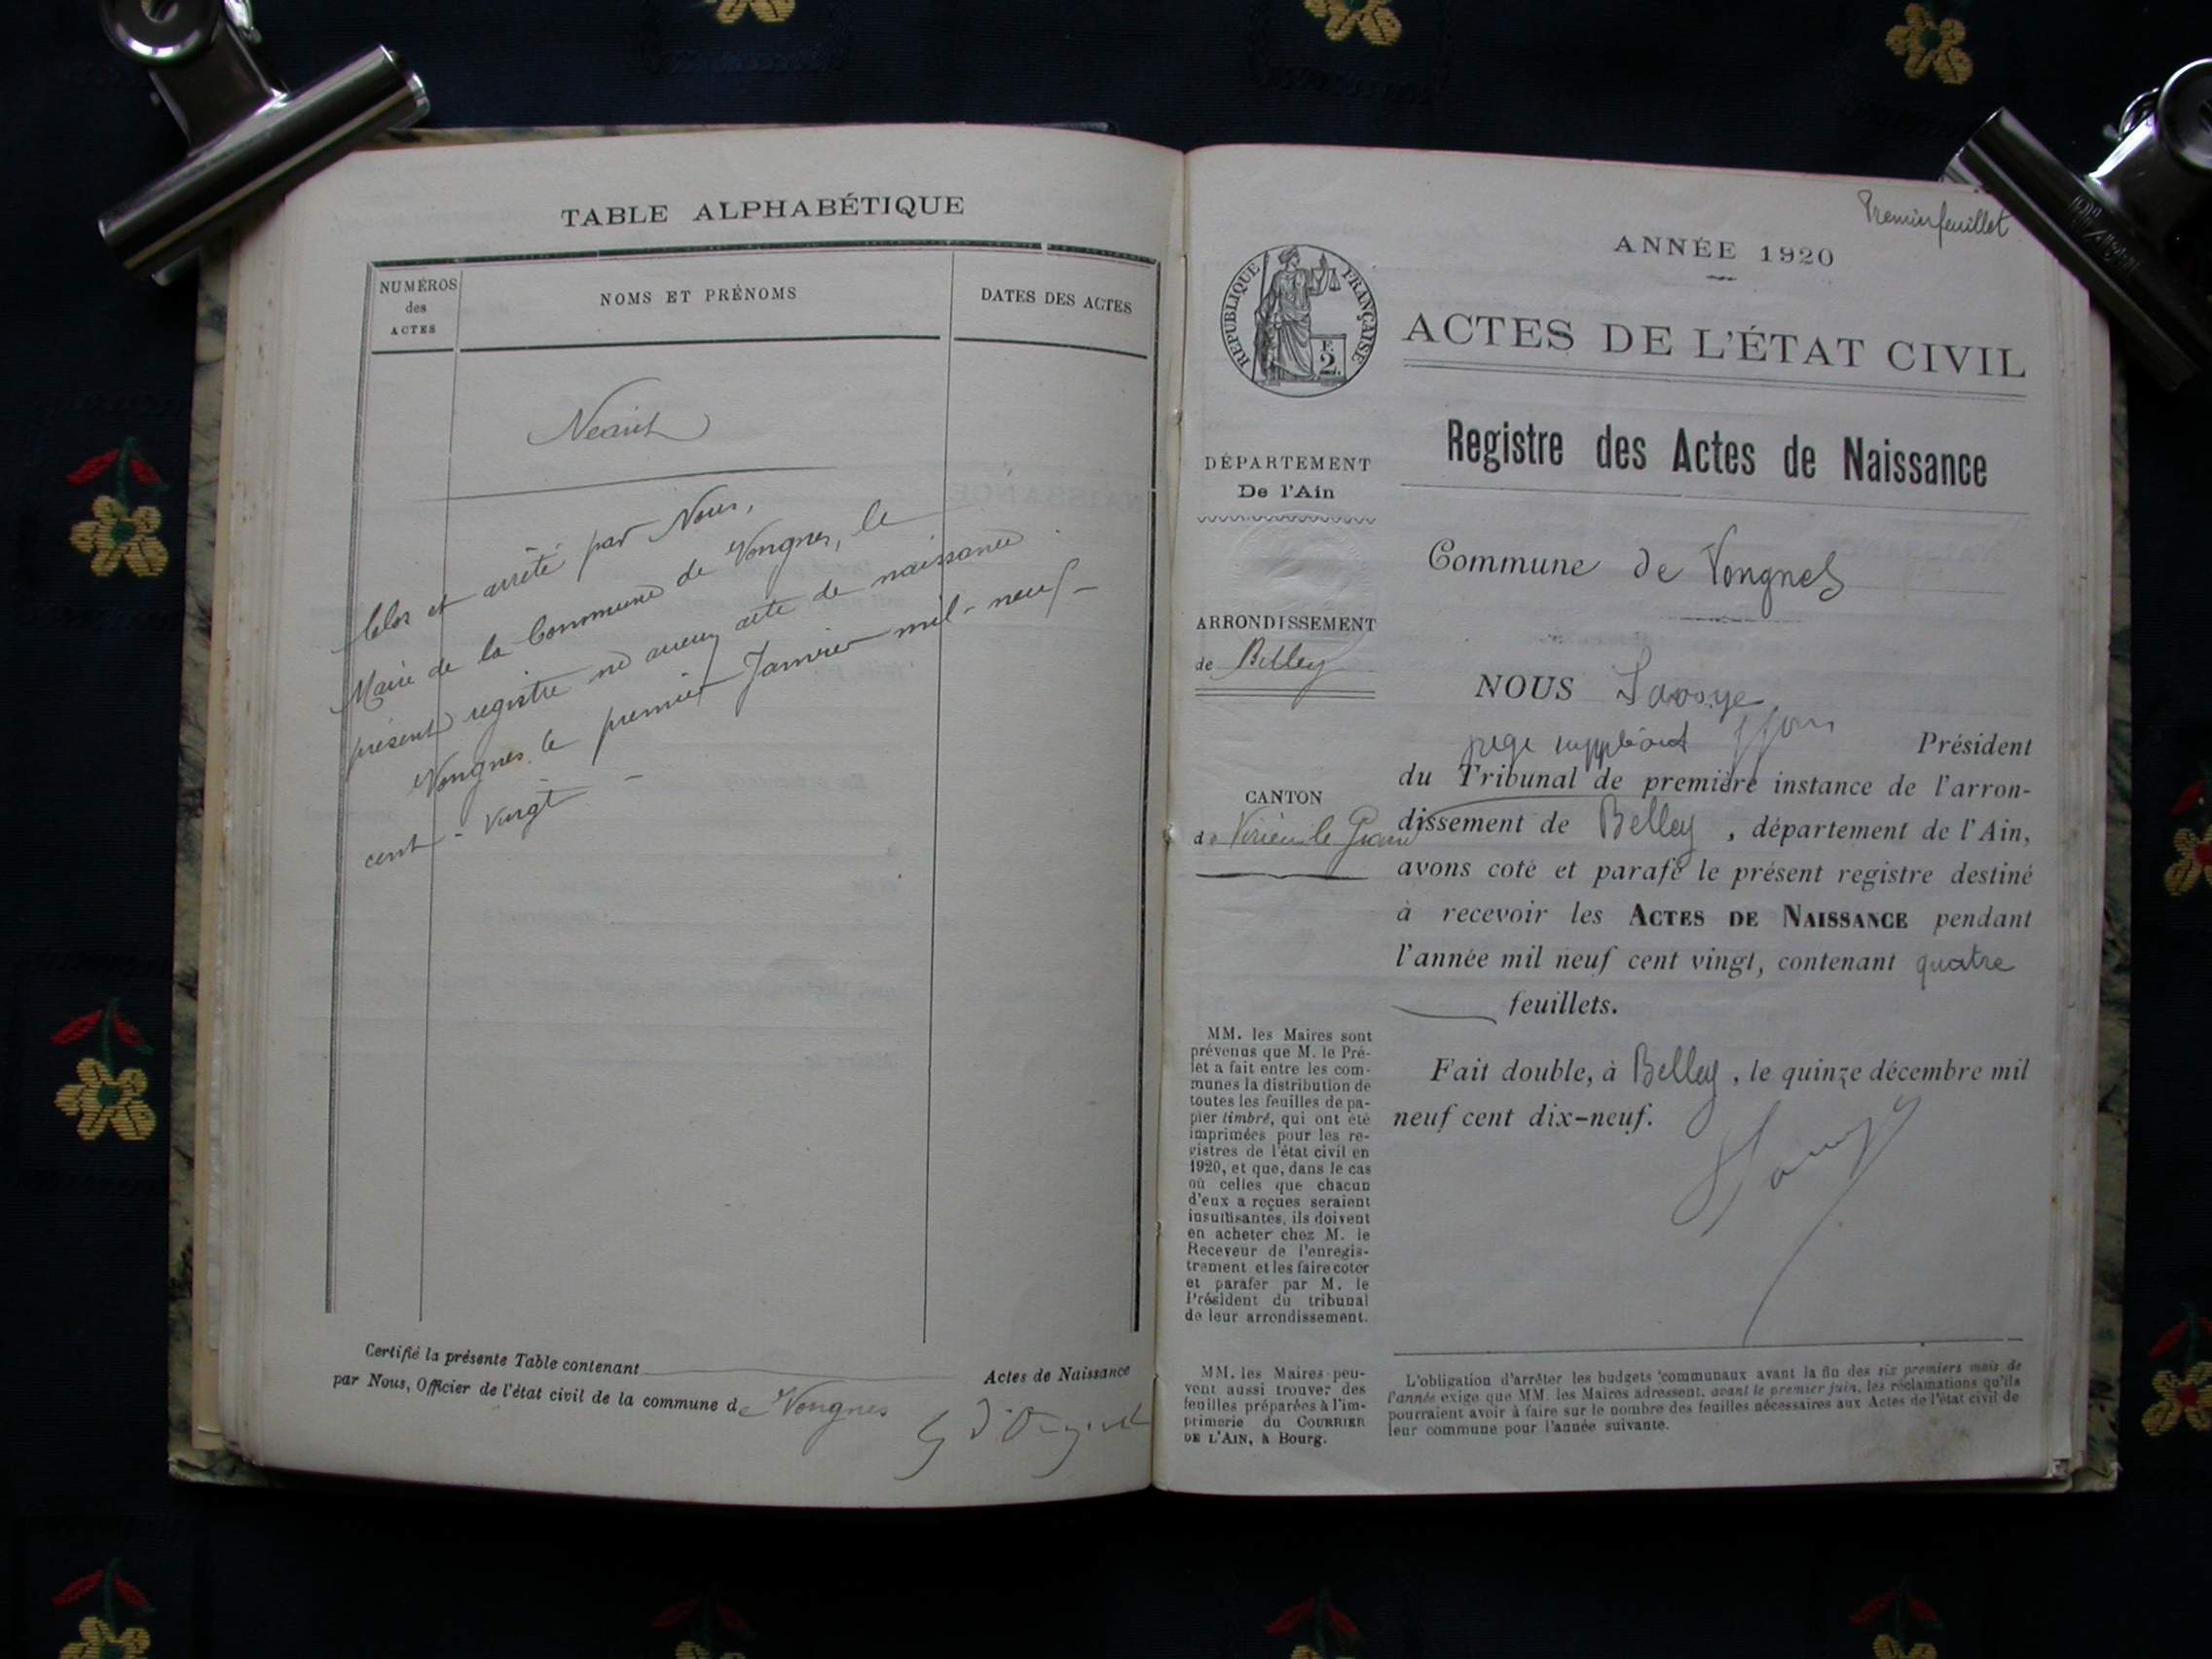 TABLE ALPHABÉTIQUE
NUMÉROS
des
ACTES
NOMS ET PRÉNOMS
DATES DES ACTES
Néant
Clos et arrêté par Nous,
Maire de la Commune de Vongnes, le
présent registre ne aucun acte de naissance
Vongnes le premier Janvier mil-neuf-
cent-vingt-
Certifié la présente Table contenant
Actes de Naissance
par Nous, Officier de l'état civil de la commune de Vongnes
Premier feuillet
ANNÉE 1920
RÉPUBLIQUE FRANÇAISE
F.
2.
ACTES DE L'ÉTAT CIVIL
Registre des Actes de Naissance
DÉPARTEMENT
De l'Ain
Commune de Vongnes
ARRONDISSEMENT
de Belley
CANTON
de Virieu le Grand
NOUS Savoye
juge suppléant
Président
du Tribunal de première instance de l'arron-
dissement de Belley, département de l'Ain,
avons coté et parafé le présent registre destiné
à recevoir les ACTES DE NAISSANCE pendant
l'année mil neuf cent vingt, contenant quatre
feuillets.
Fait double, à Belley, le quinze décembre mil
neuf cent dix-neuf.
MM. les Maires sont
prévenus que M. le Pré-
fet a fait entre les com-
munes la distribution de
toutes les feuilles de pa-
pier timbré, qui ont été
imprimées pour les re-
gistres de l'état civil en
1920, et que, dans le cas
où celles que chacun
d'eux a reçues seraient
insuffisantes, ils doivent
en acheter chez M. le
Receveur de l'enregis-
trement et les faire coter
et parafer par M. le
Président du tribunal
de leur arrondissement.
MM. les Maires peu-
vent aussi trouver des
feuilles préparées à l'im-
primerie du COURRIER
DE L'AIN, à Bourg.
L'obligation d'arrêter les budgets communaux avant la fin des six premiers mois de
l'année exige que MM. les Maires adressent, avant le premier juin, les réclamations qu'ils
pourraient avoir à faire sur le nombre des feuilles nécessaires aux Actes de l'état civil de
leur commune pour l'année suivante.